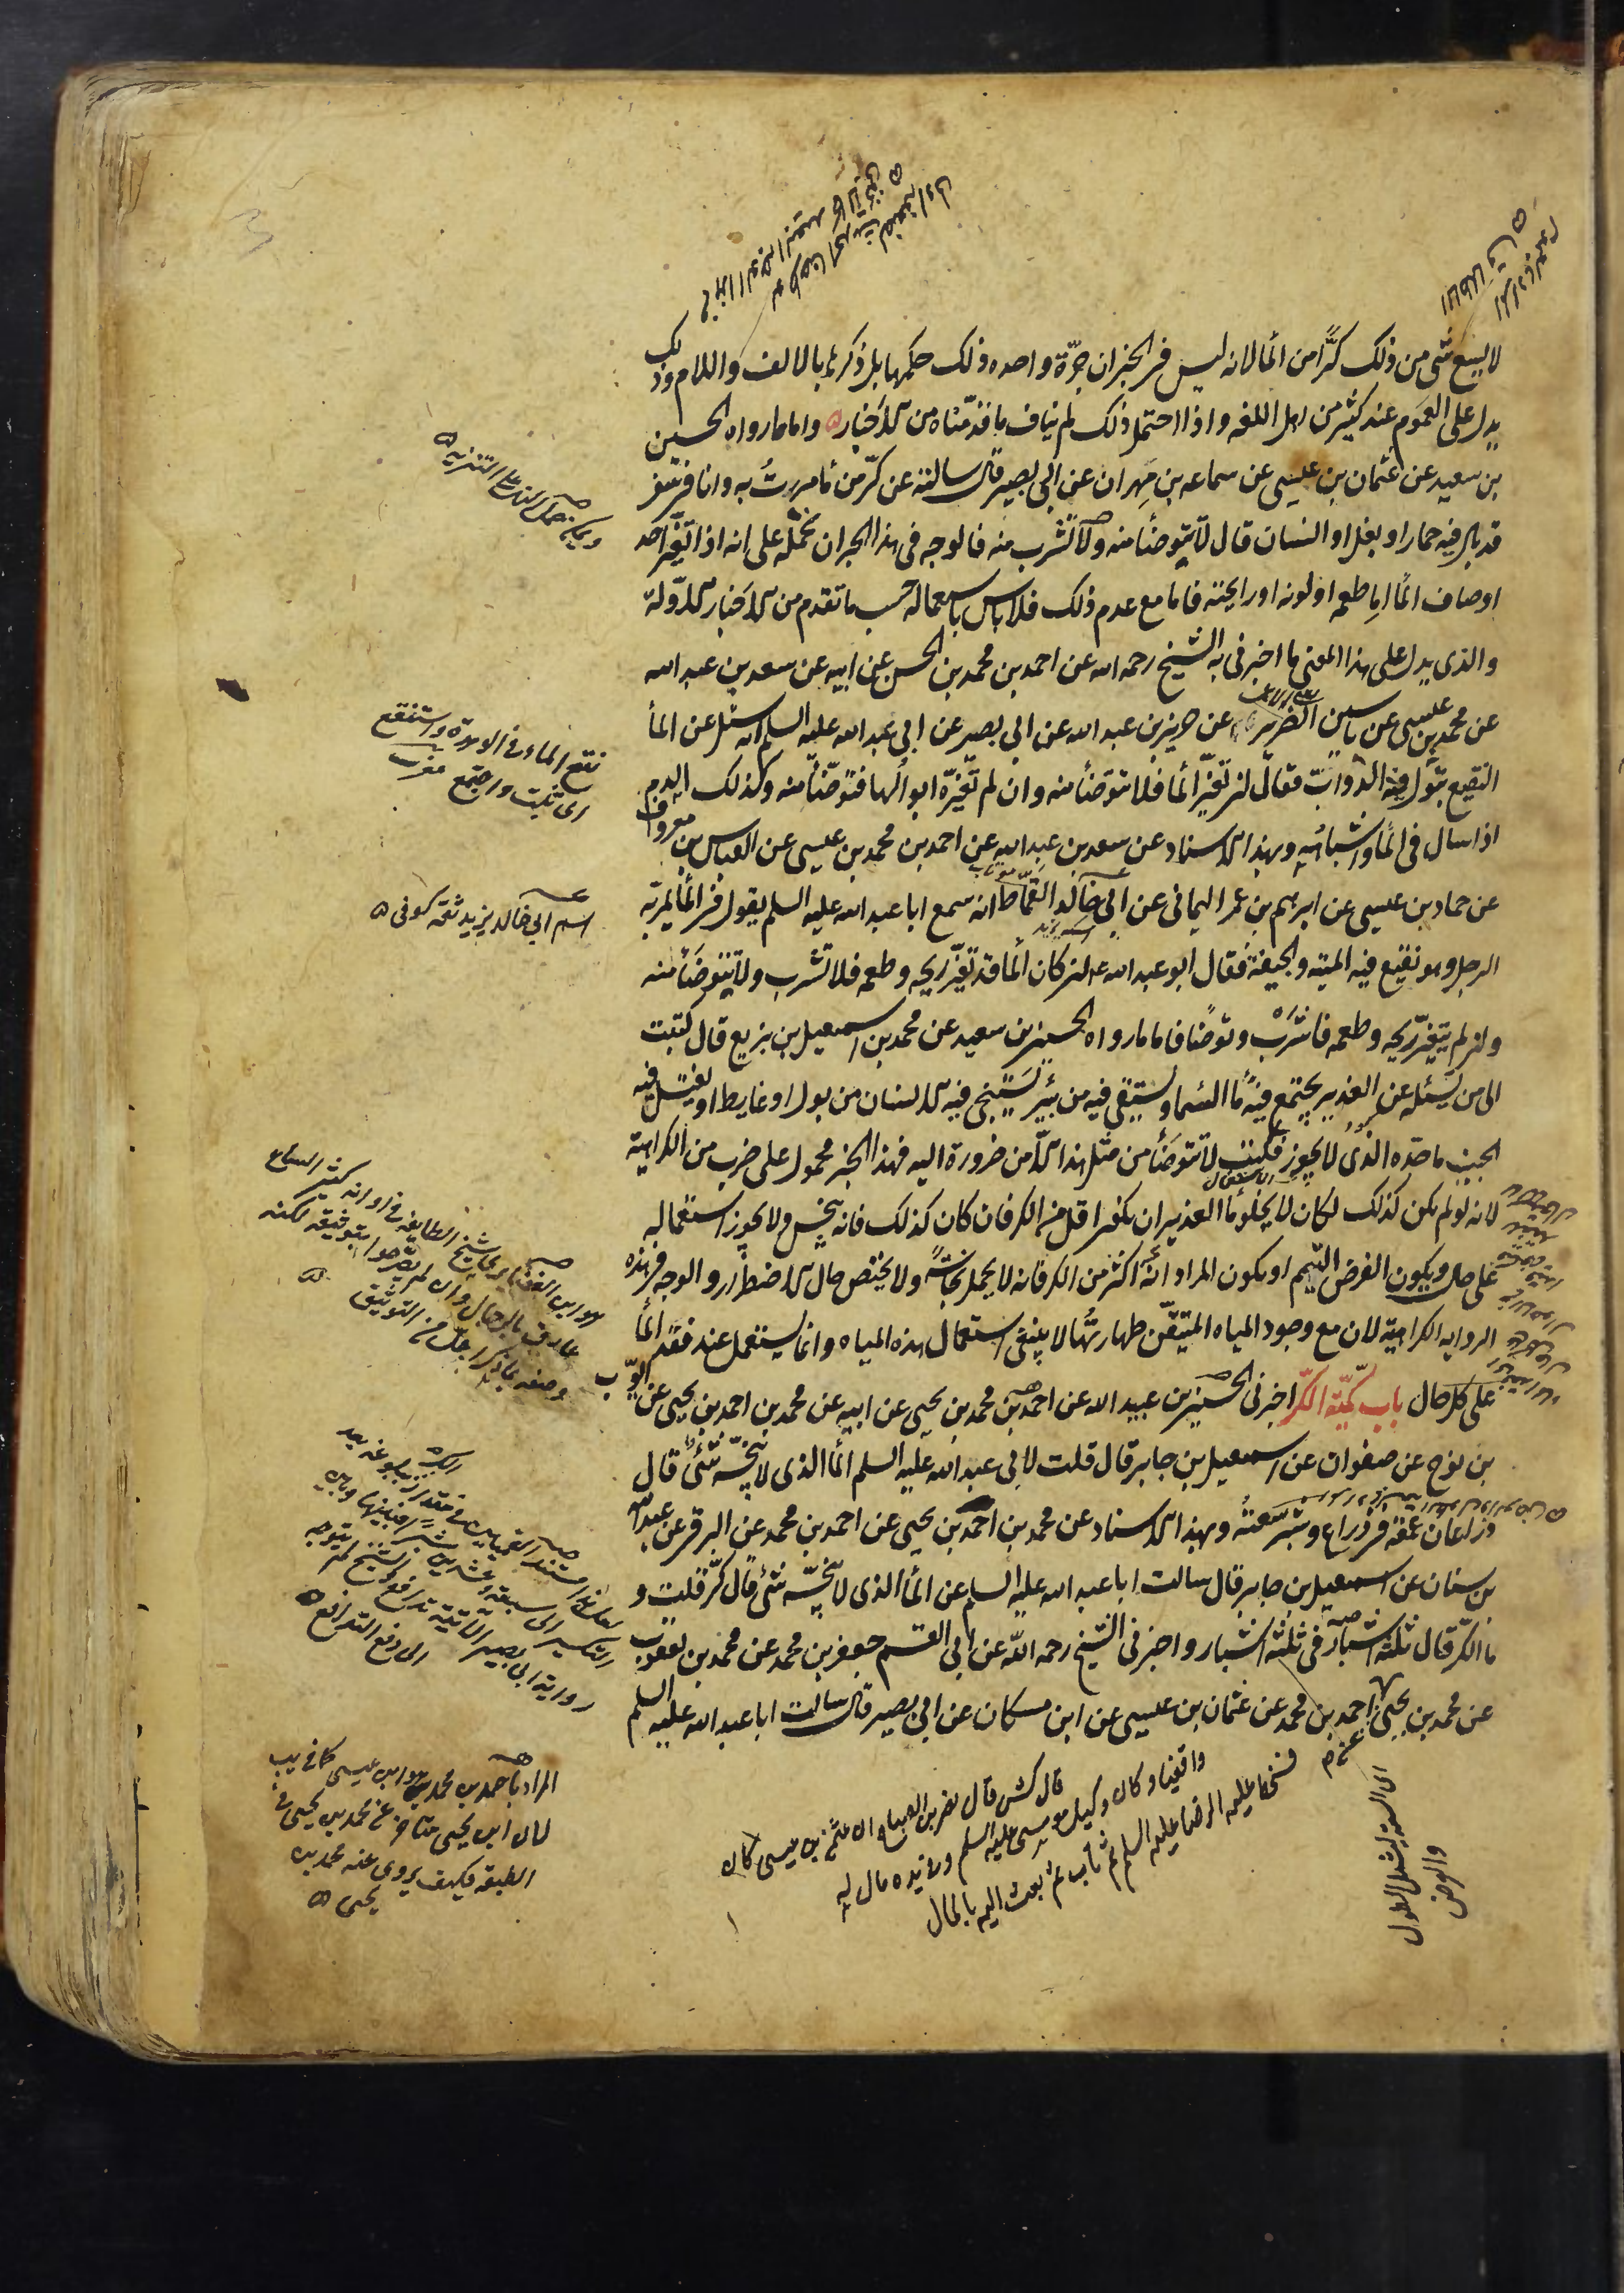 لا يسع شئ من ذلك كرًّا من الماء لانه ليس فى الخبر ان جرّة واحده ذلك حكمها بل ذكرها بالالف واللام وذلك
يدل على العموم عند كثير من اهل اللغه واذا احتمل ذلك لم يناف ما قدّمناه من الاخبار واما ما رواه الحسين
بن سعيد عن عثمان بن عيسى عن سماعه بن مهران عن ابى بصير قال سالته عن كرّ من ماء مررتُ به وانا فى سفر
قد بال فيه حمار او بغل او انسان قال لا تتوضأ منه ولا تشرب منه فالوجه فى هذا الخبر ان نحمله على انه اذا تغيّر احد
اوصاف الماء اما طعمه او لونه او رايحته فاما مع عدم ذلك فلا باس باستعماله حسب ما تقدم من الاخبار الاولة
والذى يدل على هذا المعنى ما اخبرنى به الشيخ رحمه الله عن احمد بن محمد بن الحسن عن ابيه عن سعد بن عبد الله
عن محمد بن عيسى عن ياسين الضرير عن حريز بن عبد الله عن ابى بصير عن ابى عبد الله عليه السلم انه سئل عن الماء
النقيع تبول فيه الدواب فقال ان تغيّر الماء فلا تتوضأ منه وان لم تغيّره ابوالها فتوضّأ منه وكذلك الدم
اذا سال فى الماء واشباهه وبهذا الاسناد عن سعد بن عبد الله عن احمد بن محمد بن عيسى عن العباس بن معروف
عن حماد بن عيسى عن ابرهيم بن عمر اليمانى عن ابى خالد القمّاط انه سمع ابا عبد الله عليه السلم يقول فى الماء يمر به
الرجل وهو نقيع فيه الميته والجيفة فقال ابو عبد الله ع ان كان الماء قد تغيّر ريحه وطعمه فلا تشرب ولا تتوضأ منه
وان لم يتغيّر ريحه وطعمه فاشرب وتوضأ فاما ما رواه الحسين بن سعيد عن محمد بن اسمعيل بن بزيع قال كتبت
الى من يسئله عن الغدير يجتمع فيه ماء السماء ويستقى فيه من بئر يستنجى فيه الانسان من بول او غايط او يغتسل فيه
الجنب ما حدّه الذى لا يجوز فكتب لا تتوضأ من مثل هذا الا من ضرورة اليه فهذا الخبر محمول على ضرب من الكراهية
لانه لو لم يكن كذلك لكان لا يخلو ماء الغدير ان يكون اقل من الكر فان كان كذلك فانه ينجس ولا يجوز استعماله
على حال ويكون الفرض التيمم او يكون المراد انه اكثر من الكر فانه لا يحمل نجاسة ولا يختص حال الاضطرار والوجه فى هذه
الروايه الكراهية لان مع وجود المياه المتيقّن طهارتها لا ينبغى استعمال هذه المياه وانما يستعمل عند فقد الماء
على كل حال باب كميّة الكرّ اخبرنى الحسين بن عبيد الله عن احمد بن محمد بن يحيى عن ابيه عن محمد بن احمد بن يحيى عن ايّوب
بن نوح عن صفوان عن اسمعيل بن جابر قال قلت لابى عبد الله عليه السلم الماء الذى لا ينجّسه شئ قال
ذراعان عمقه فى ذراع وشبر سعته وبهذا الاسناد عن محمد بن احمد بن يحيى عن احمد بن محمد عن البرقى عن عبد الله
بن سنان عن اسمعيل بن جابر قال سالت ابا عبد الله عليه السلم عن الماء الذى لا ينجّسه شئ قال كرّ قلت و
ما الكرّ قال ثلثه اشبار فى ثلثه اشبار واخبرنى الشيخ رحمه الله عن ابى القسم جعفر بن محمد عن محمد بن يعقوب
عن محمد بن يحيى احمد بن محمد عن عثمان بن عيسى عن ابن مسكان عن ابى بصير قال سالت ابا عبد الله عليه السلم
نقع الماء فى الوهدة واستنقع
اى ثبت واجتمع مغرب
اسم ابى خالد يزيد ثقة كوفى
المراد باحمد بن محمد هو ابن عيسى كما فى يب
لان ابن يحيى متاخر عن محمد بن يحيى فى
الطبقه فكيف يروى عنه محمد بن
يحيى
قال كش قال نصر بن الصباح ان عثمن بن عيسى كان
واقفيا وكان وكيل موسى عليه السلم وفى يده مال له
فسخط عليه الرضا عليه السلم ثم تاب ثم بعث اليه بالمال
اى السعة يشمل الطول
والعرض